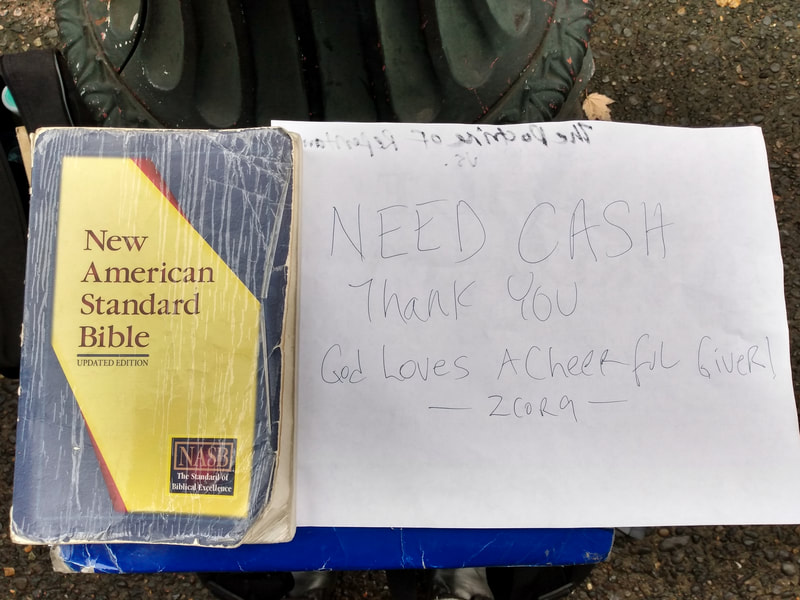 New
American
Standard
Bible
UPDATED EDITION
NASB
The Standard of
Biblical Excellence
The Doctrine of
vs.
NEED CASH
Thank YOU
God Loves A Cheerful Giver!
— 2COR9 —